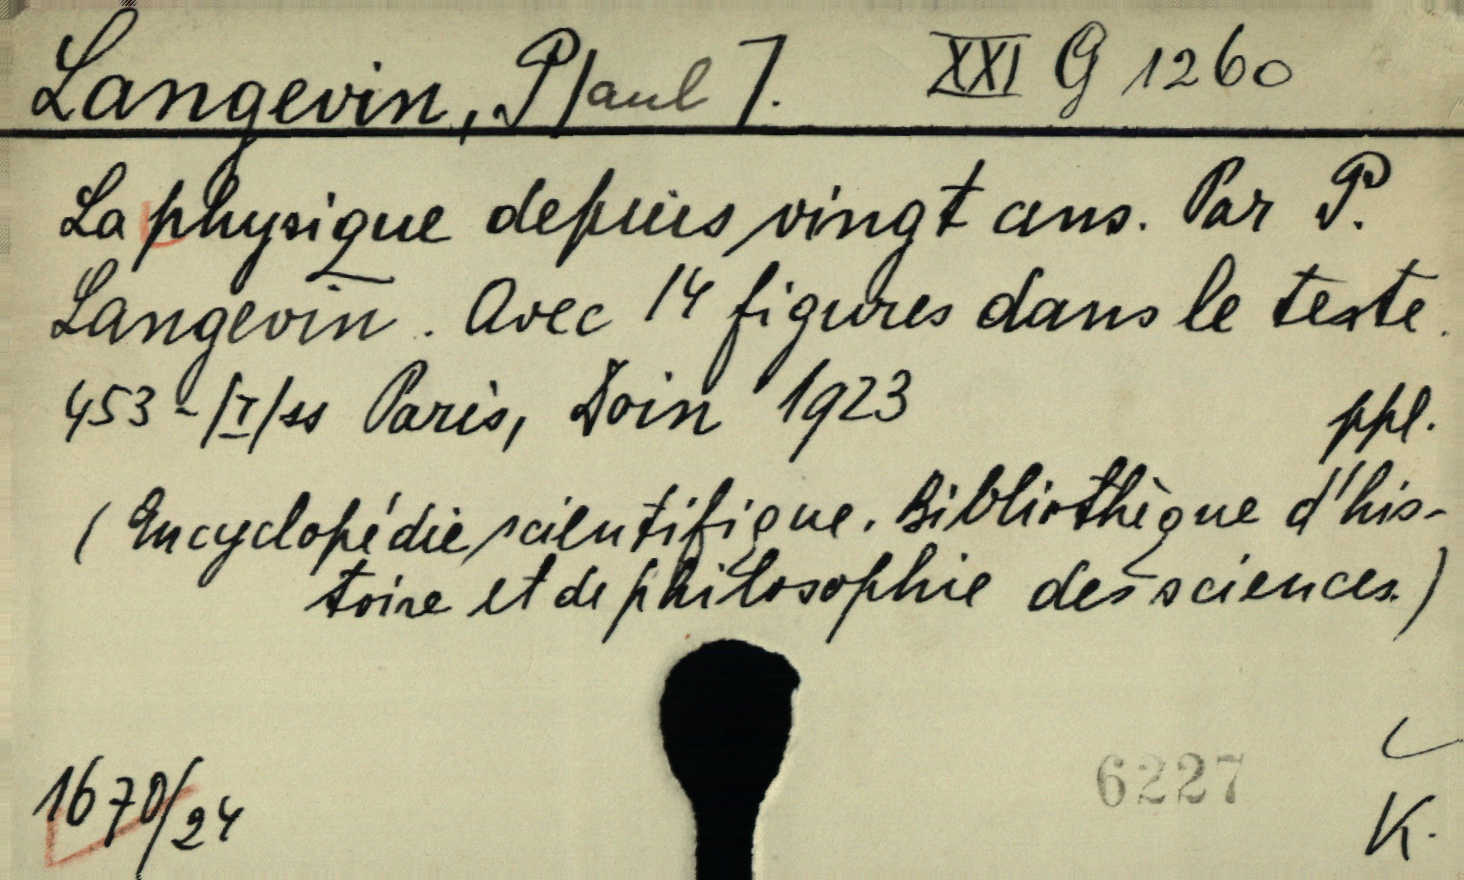 Langevin, P[aul]. XXI G 1260
La physique depuis vingt ans. Par P.
Langevin. Avec 14 figures dans le texte.
453-[I]ss Paris, Doin 1923 ppl.
(Encyclopédie scientifique. Bibliothèque d'his-
toire et de philosophie des sciences.)
1670/24 6227
K.